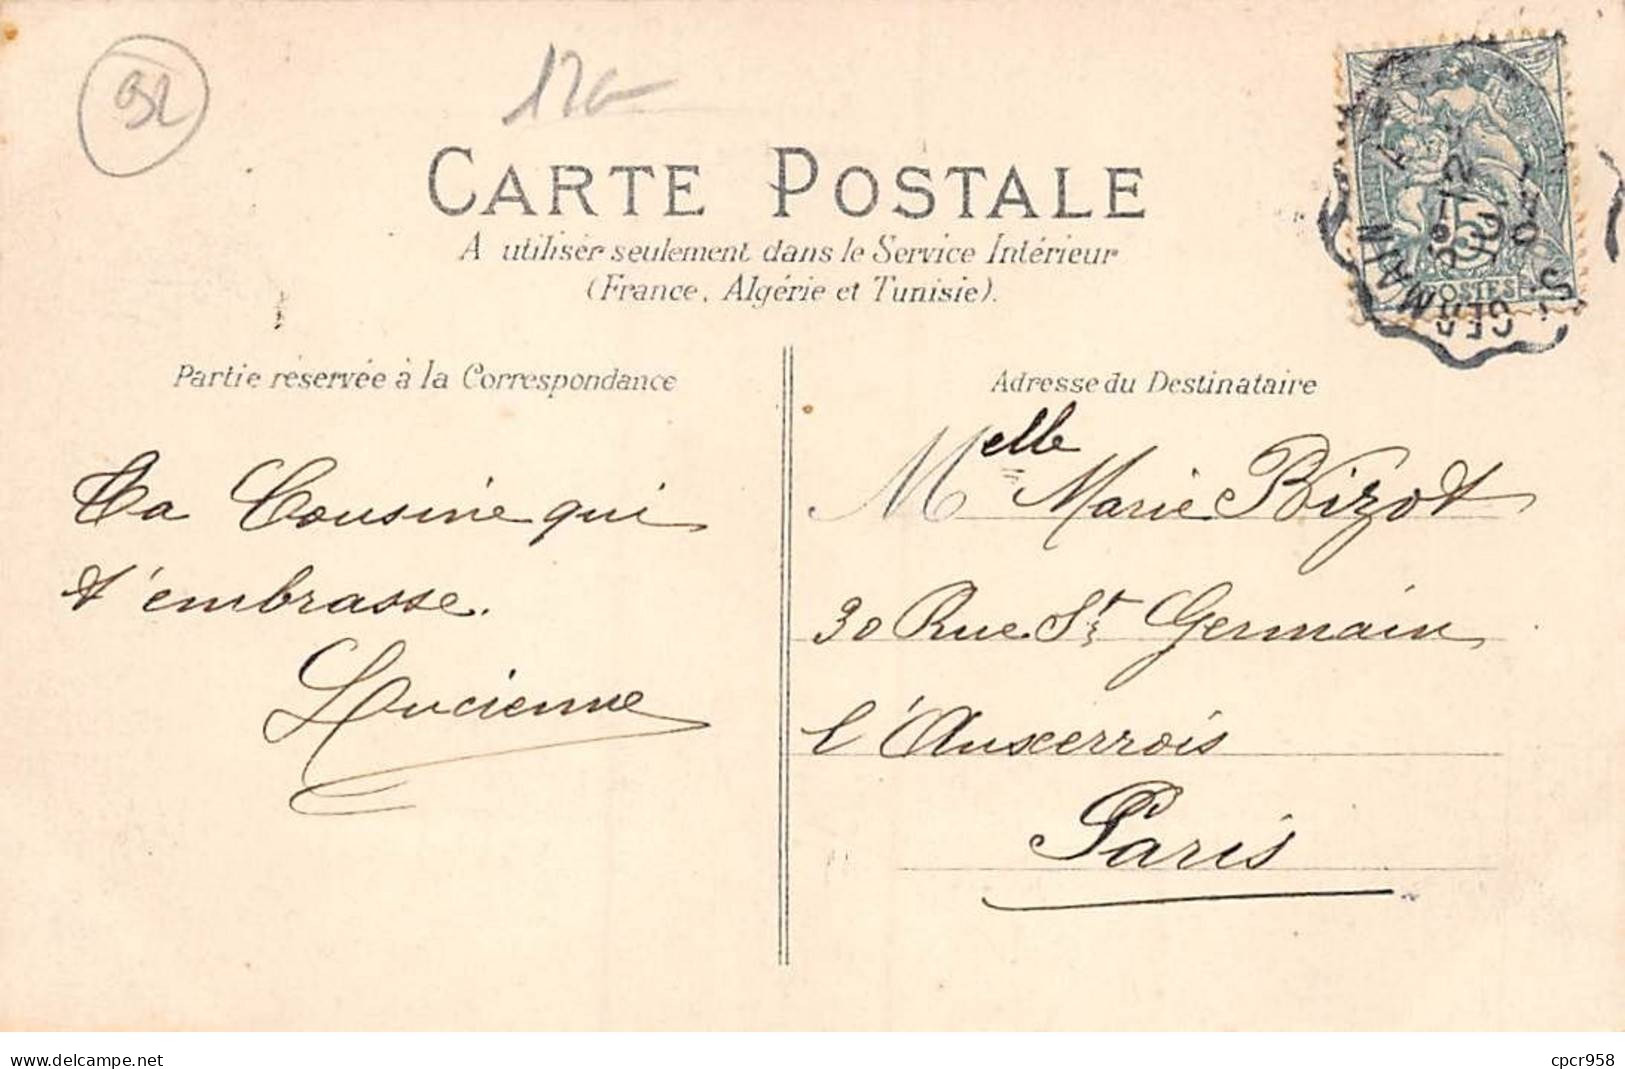 92
CARTE POSTALE
A utiliser seulement dans le Service Intérieur
(France, Algérie et Tunisie).
POSTES
5
GERMAIN
Partie réservée à la Correspondance
Adresse du Destinataire
Ta Cousine qui
t'embrasse.
Lucienne
Melle Marie Bizot
30 Rue St Germain
l'Auxerrois
Paris
delcampe.net
cpcr958